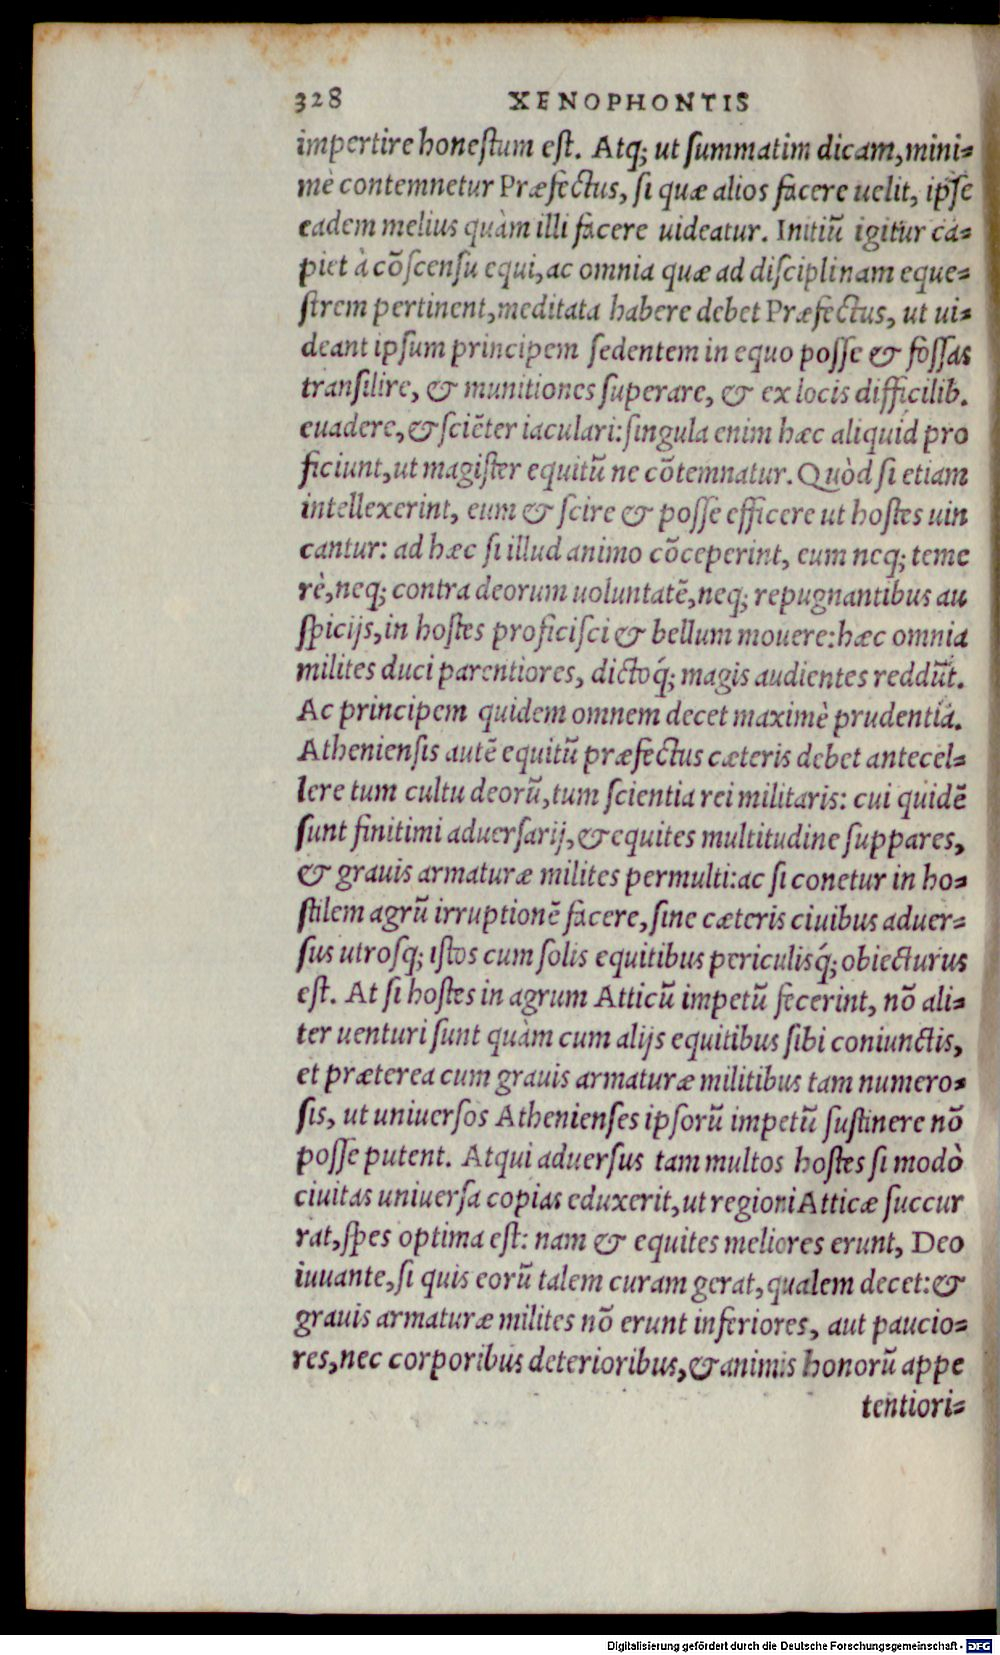 328 XENOPHONTIS
impertire honeſtum eſt. Atq; ut ſummatim dicam, mini-
mè contemnetur Præfectus, ſi quæ alios facere uelit, ipſe
eadem melius quàm illi facere uideatur. Initiũ igitur ca-
piet à cõſcenſu equi, ac omnia quæ ad diſciplinam eque-
ſtrem pertinent, meditata habere debet Præfectus, ut ui-
deant ipſum principem ſedentem in equo poſſe & foſſas
tranſilire, & munitiones ſuperare, & ex locis difficilib.
euadere, & ſciẽter iaculari: ſingula enim hæc aliquid pro
ficiunt, ut magiſter equitũ ne cõtemnatur. Quòd ſi etiam
intellexerint, eum & ſcire & poſſe efficere ut hoſtes uin
cantur: ad hæc ſi illud animo cõceperint, eum neq; teme
rè, neq; contra deorum uoluntatẽ, neq; repugnantibus au
ſpicijs, in hoſtes proficiſci & bellum mouere: hæc omnia
milites duci parentiores, dictoq́; magis audientes reddũt.
Ac principem quidem omnem decet maximè prudentiã.
Athenienſis autẽ equitũ præfectus cæteris debet antecel-
lere tum cultu deorũ, tum ſcientia rei militaris: cui quidẽ
ſunt finitimi aduerſarij, & equites multitudine ſuppares,
& grauis armaturæ milites permulti: ac ſi conetur in ho-
ſtilem agrũ irruptionẽ facere, ſine cæteris ciuibus aduer-
ſus utroſq; iſtos cum ſolis equitibus periculisq́; obiecturus
eſt. At ſi hoſtes in agrum Atticũ impetũ fecerint, nõ ali-
ter uenturi ſunt quàm cum alijs equitibus ſibi coniunctis,
et præterea cum grauis armaturæ militibus tam numero-
ſis, ut uniuerſos Athenienſes ipſorũ impetũ ſuſtinere nõ
poſſe putent. Atqui aduerſus tam multos hoſtes ſi modò
ciuitas uniuerſa copias eduxerit, ut regioni Atticæ ſuccur
rat, ſpes optima eſt: nam & equites meliores erunt, Deo
iuuante, ſi quis eorũ talem curam gerat, qualem decet: &
grauis armaturæ milites nõ erunt inferiores, aut paucio-
res, nec corporibus deterioribus, & animis honorũ appe
tentiori-
Digitalisierung gefördert durch die Deutsche Forschungsgemeinschaft - DFG